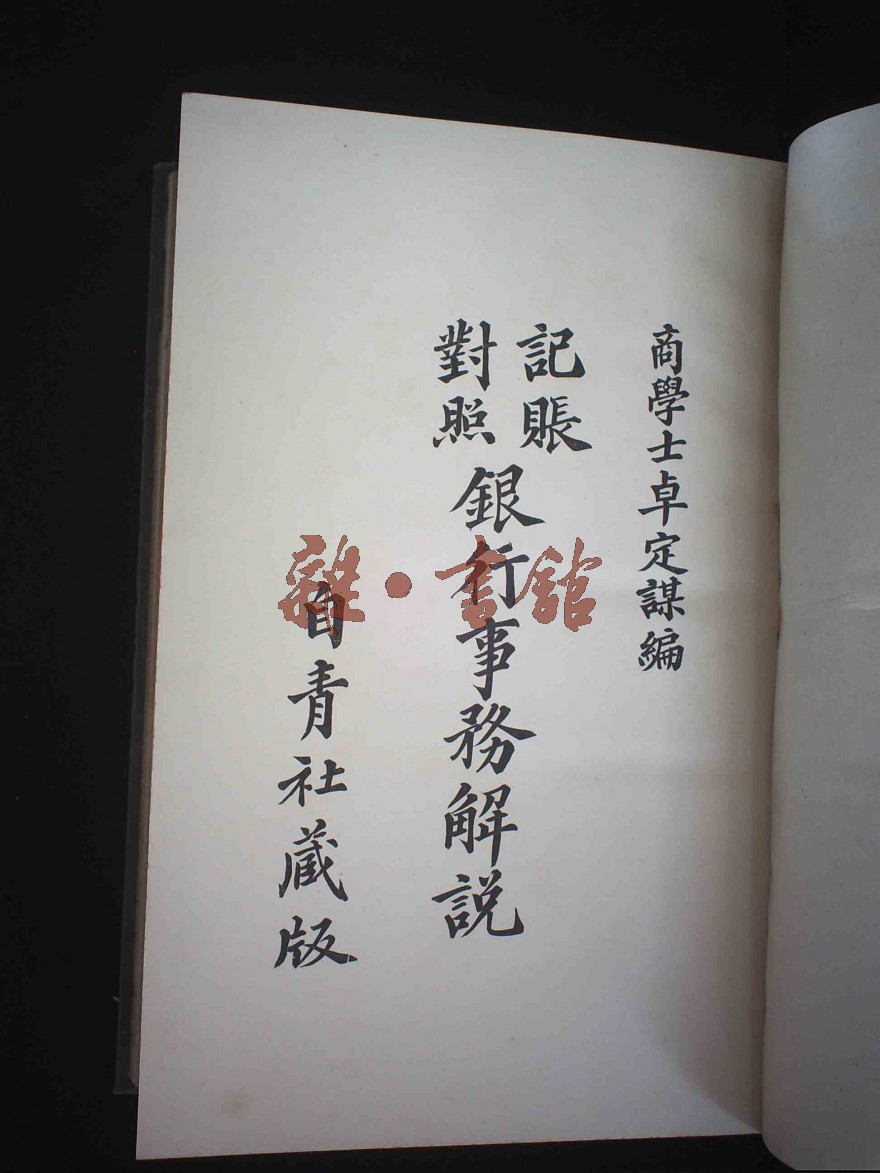 商學士卓定謀編
記賬
對照
銀行事務解説
自青社藏版
雜·書館